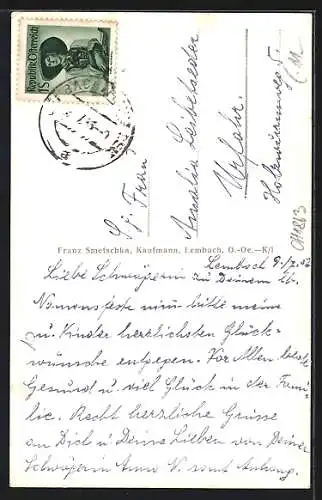 Republik Österreich
1 S
Sj. Frau
Amalia
Urfahr.
5
Franz Smetschka, Kaufmann, Lembach, O.-Oe.—K/I
Lembach 9./7. 52
Liebe Schwägerin zu Deinem lb.
Namensfeste nim bitte meine
u. Kinder herzlichsten Glück-
wünsche entgegen. Vor Allen beste
Gesundt u. viel Glück in der Fami-
lie. Recht herzliche Grüsse
an Dich u Deine Lieben von Deiner
Schwägerin Anna N. samt Anhang.